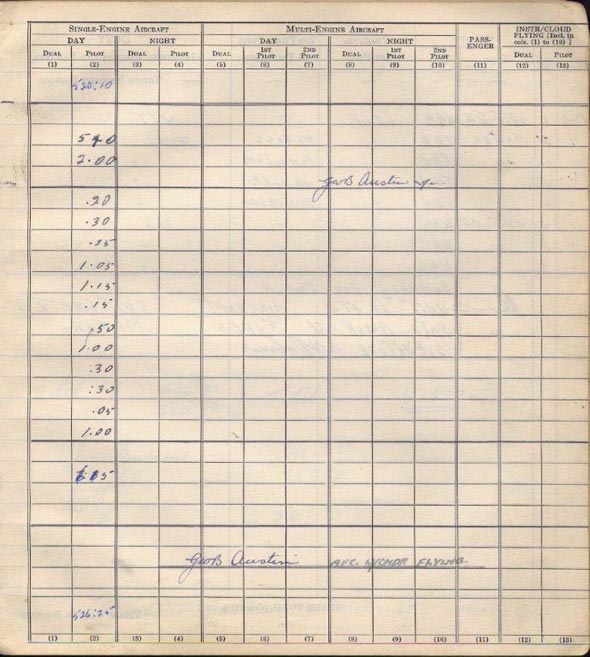 SINGLE-ENGINE AIRCRAFT MULTI-ENGINE AIRCRAFT PASS-ENGER INSTR/CLOUD FLYING [Incl. in cols. (1) to (10)]
DAY NIGHT DAY NIGHT
DUAL PILOT DUAL PILOT DUAL 1ST PILOT 2ND PILOT DUAL 1ST PILOT 2ND PILOT DUAL PILOT
(1) (2) (3) (4) (5) (6) (7) (8) (9) (10) (11) (12) (13)
520:10
2.00
GeoB Austin
.20
.30
.25
1.05
1.15
.15
.50
1.00
.30
:30
.05
1.00
GeoB Austin
FLYING
526:25
(1) (2) (3) (4) (5) (6) (7) (8) (9) (10) (11) (12) (13)